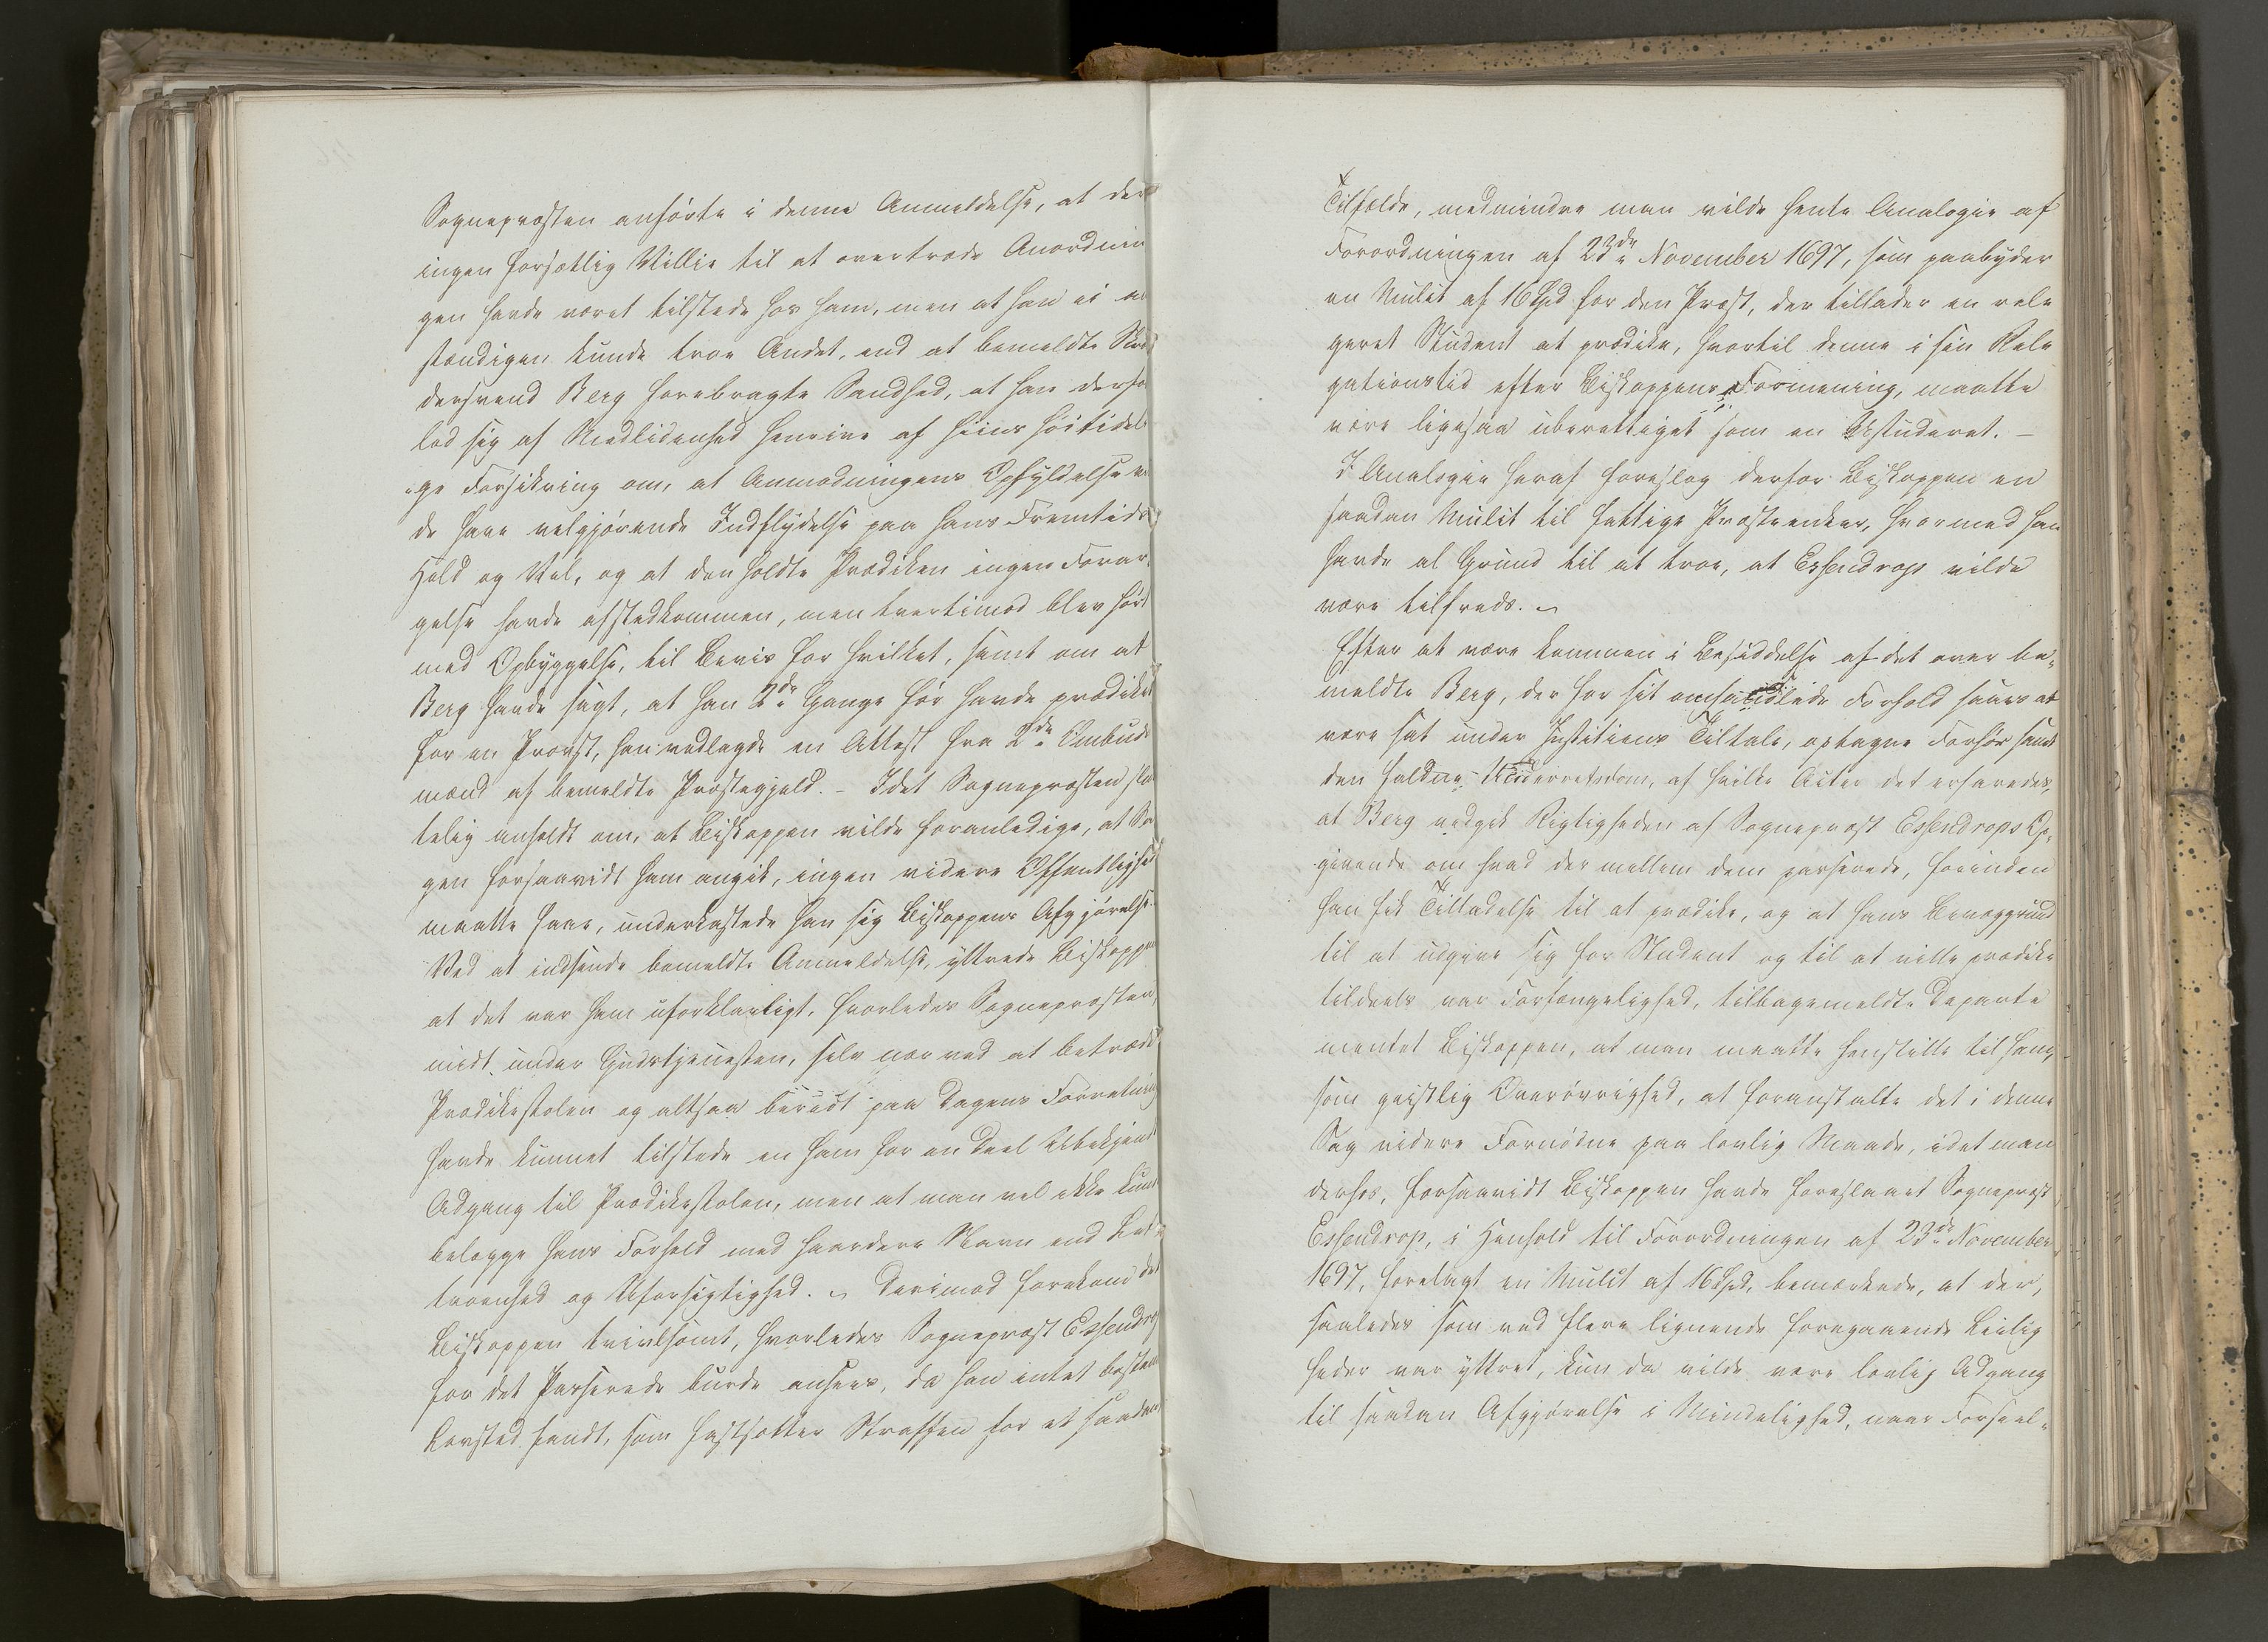 Sognepræsten anførte i denne Anmeldelse, at der
ingen forsætlig Villie til at overtræde Anordnin
gen havde været tilstede hos ham, men at han ei
stændigen kunde troe Andet, end at bemeldte Skræ
dersvend Berg forebragte Sandhed, at han derfor
lod sig af Medlidenhed henrive af hiins høitideli
ge Forsikring om, at Anmodningens Opfyldelse vil
de have velgjørende Indflydelse paa hans Fremtids
Held og Vel, og at den holdte Prædiken ingen Forar
gelse havde afstedkommen, men tvertimod blev hørt
med Opbyggelse, til Beviis for hvilket, samt om at
Berg havde sagt, at han 2de Gange før havde prædiket
for en Provst, han vedlagde en Attest fra 2de Embuds
mænd af bemeldte Præstegjeld. – Idet Sognepræsten slut
telig anholdt om, at Biskoppen vilde foranledige, at Sa
gen forsaavidt ham angik, ingen videre Offentlighed
maatte faae, underkastede han sig Biskoppens Afgjørelse.
Ved at indsende bemeldte Anmeldelse, yttrede Biskoppen
at det var ham uforklarligt, hvorledes Sognepræsten,
midt under Gudstjenesten, selv nær ved at betræde
Prædikestolen og altsaa beredt paa Dagens Forretning
havde kunnet tilstede en ham for en Deel Ubekjendt
Adgang til Prædikestolen, men at man vel ikke kunde
belægge hans Forhold med haardere Navn end Let-
troenhed og Uforsigtighed. – Derimod forekom det
Biskoppen tvivlsomt, hvorledes Sognepræst Essendrop
for det Passerede burde ansees, da han intet bestemt
Lovsted fandt, som fastsætter Straffen for et saadant
Tilfælde, medmindre man vilde hente Analogie af
Forordningen af 23de November 1697, som paabyder
en Mulct af 16 Spd for den Præst, der tillader en rele
geret Student at prædike, hvortil denne i sin Rele
gationstid efter Biskoppens Formening, maatte
være ligesaa uberettiget som en Ustuderet. –
I Analogie heraf foreslog derfor Biskoppen en
saadan Mulct til fattige Præsteenker, hvormed han
havde al Grund til at troe, at Essendrop vilde
være tilfreds. –
Efter at være kommen i Besiddelse af det over be-
meldte Berg, der for sit omhandlede Forhold saaes at
være sat under Justitiens Tiltale, optagne Forhør samt
den faldne Underretsdom, af hvilke Acter det erfaredes,
at Berg vedgik Rigtigheden af Sognepræst Essendrops Op-
givende om hvad der mellem dem passerede, forinden
han fik Tilladelse til at prædike, og at hans Bevæggrund
til at udgive sig for Student og til at ville prædike
tildeels var Forfængelighed, tilbagemeldte Departe
mentet Biskoppen, at man maatte henstille til ham,
som geistlig Overøvrighed, at foranstalte det i denne
Sag videre Fornødne paa lovlig Maade, idet man
derhos, forsaavidt Biskoppen havde foreslaaet Sognepræst
Essendrop, i Henhold til Forordningen af 23de November
1697, forelagt en Mulct af 16 Spd, bemærkede, at der,
saaledes som ved flere lignende foregaaende Leilig
heder var yttret, kun da vilde være lovlig Adgang
til saadan Afgjørelse i Mindelighed, naar Forseel-